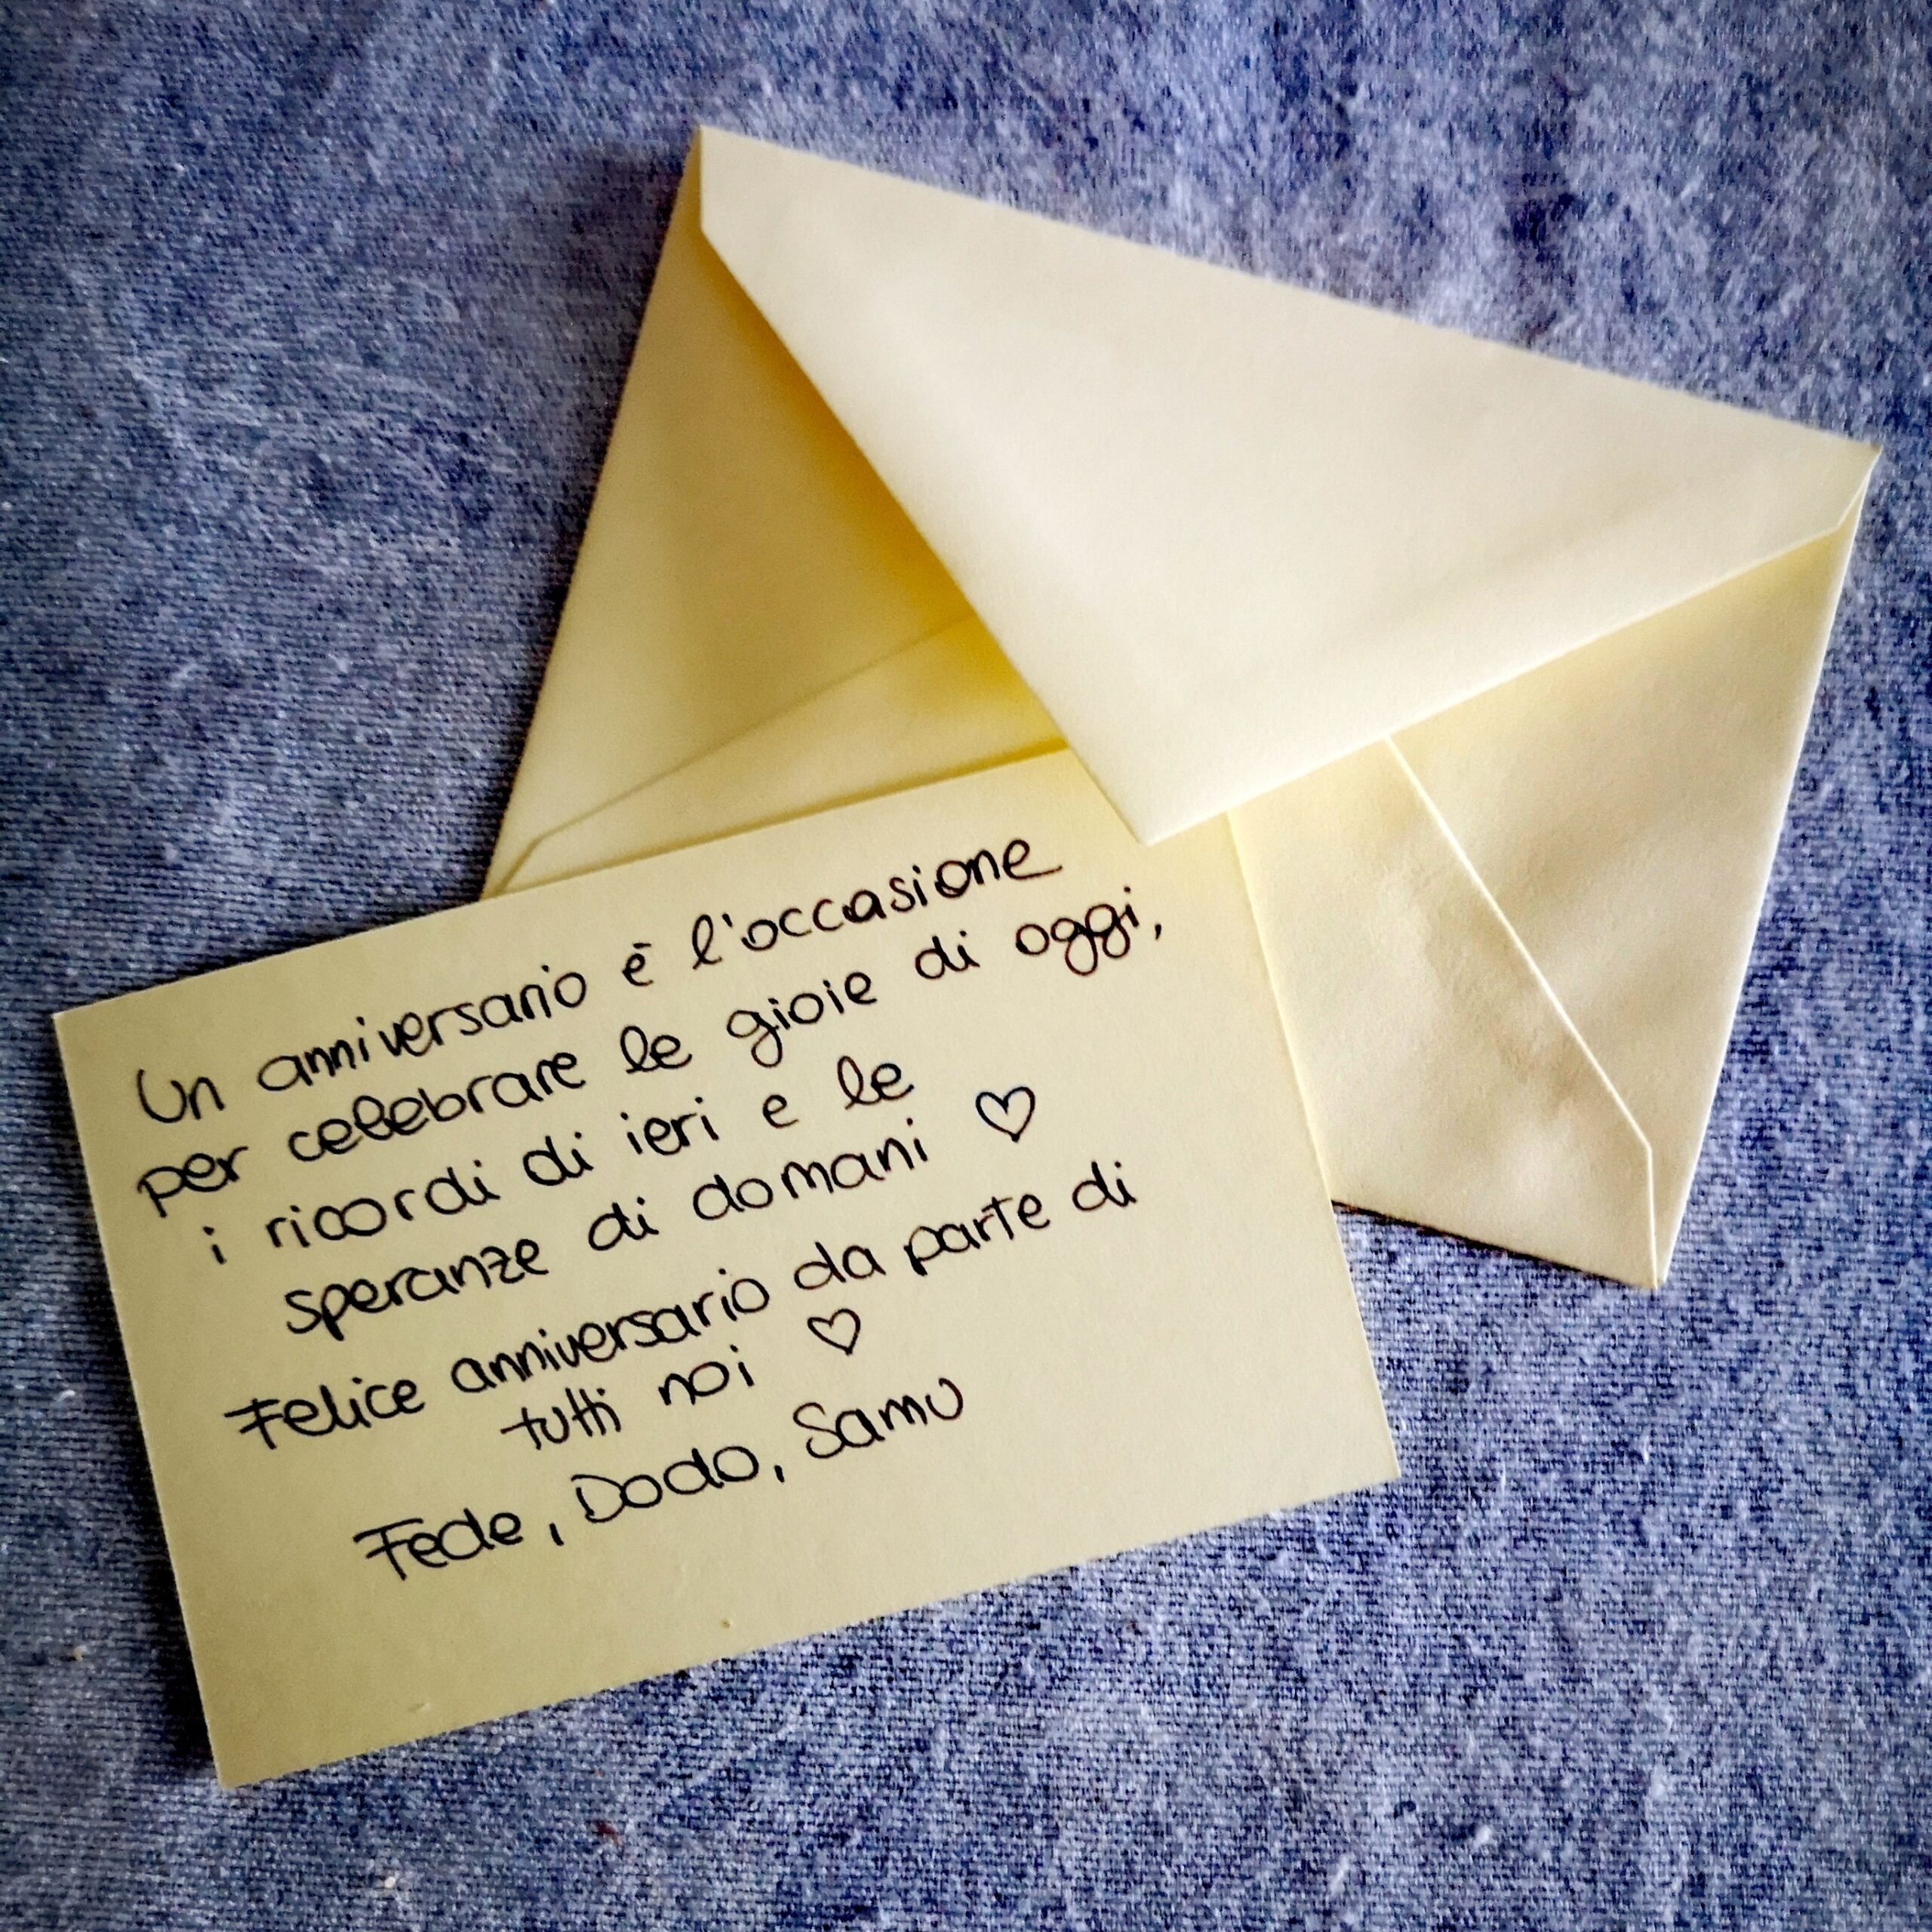 Un anniversario è l'occasione
per celebrare le gioie di oggi,
i ricordi di ieri e le
speranze di domani ♡
Felice anniversario da parte di
tutti noi ♡
Fede, Dodo, Samu